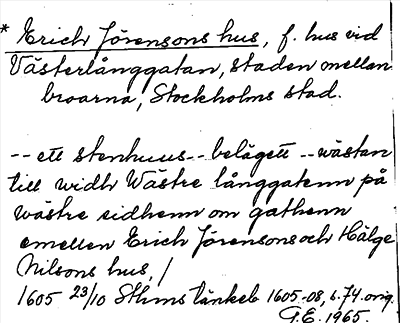 * Erich Jörensons hus, f. hus vid
Västerlånggatan, staden mellan
broarna, Stockholms stad.
-- ett stenhuus -- belägett -- wästan
till widh Wästre långgatenn på
wästre sidhenn om gathenn
emellen Erich Jörensons och Hälge
Nilsons hus, /
1605 23/10 Sthms tänkeb 1605-08, s. 74. orig.
G.E. 1965.